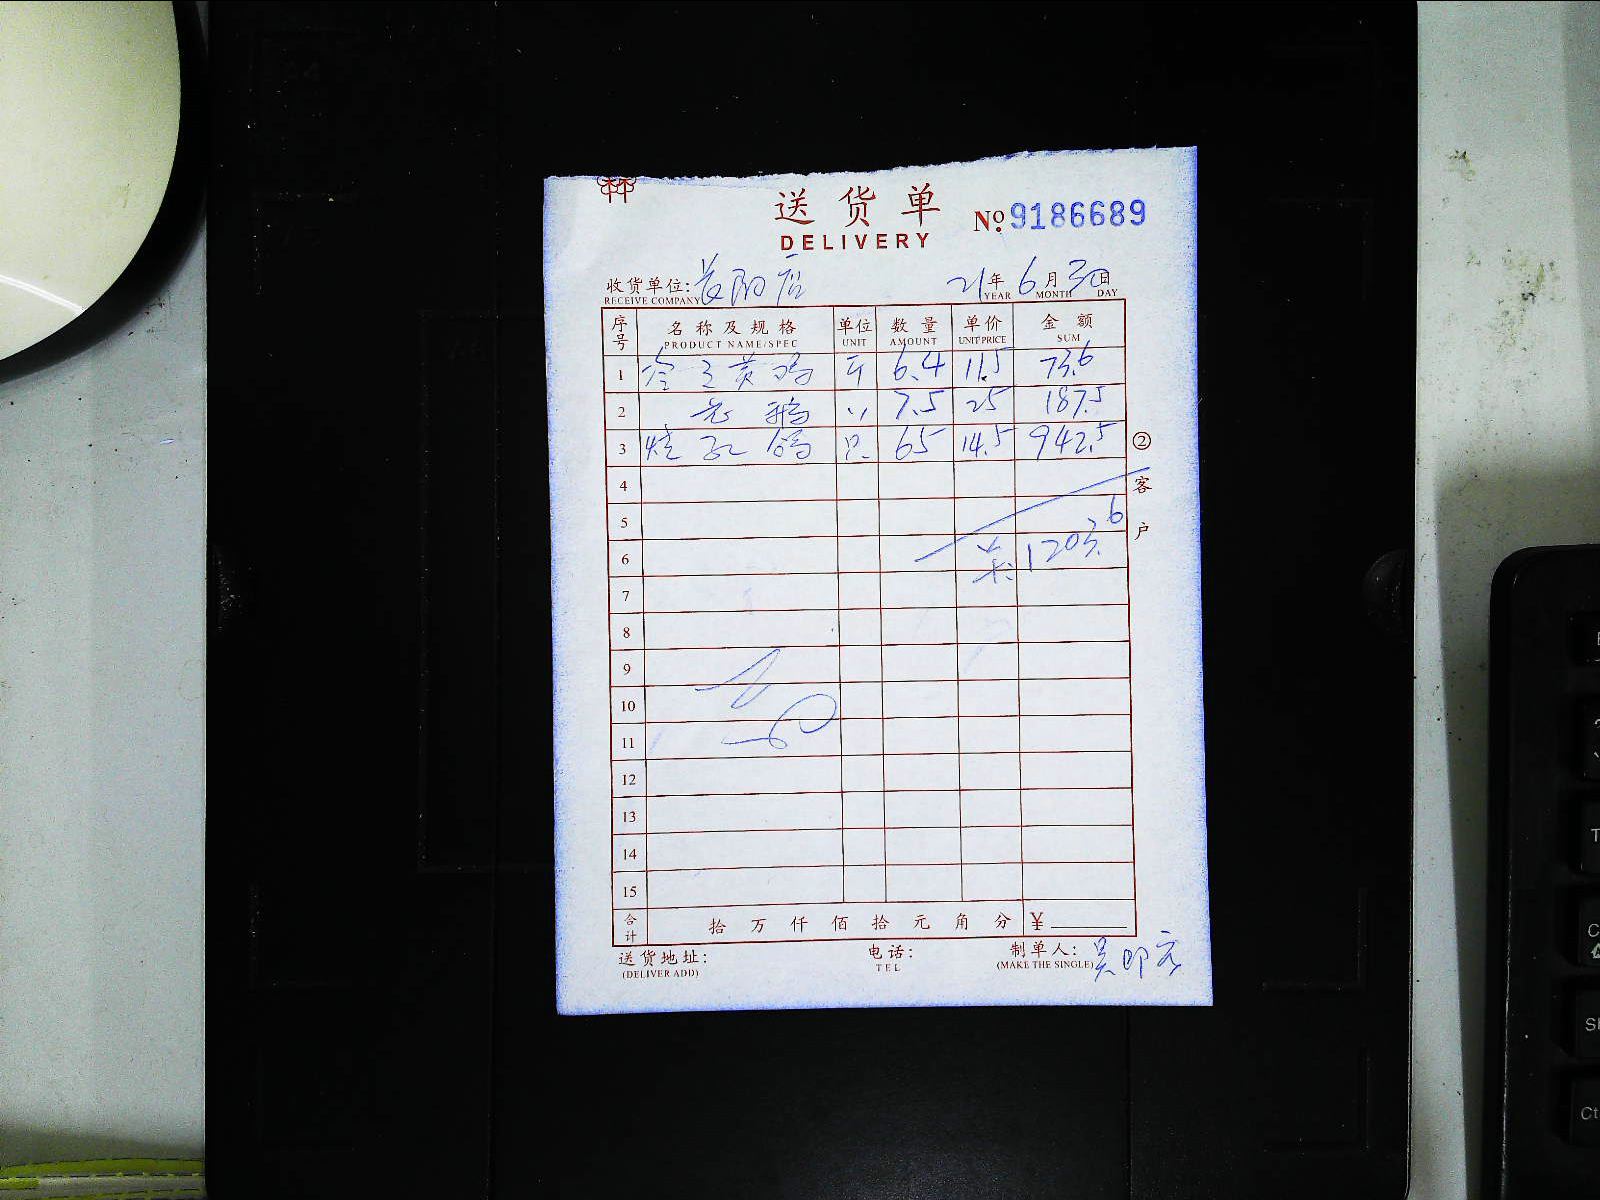 送货单
DELIVERY
№ 9186689
收货单位: 21年 6月 30日
RECEIVE COMPANY YEAR MONTH DAY
序号 名称及规格 单位 数量 单价 金额
PRODUCT NAME/SPEC UNIT AMOUNT UNIT PRICE SUM
1 斤 6.4 11.5 73.6
2 老鸭 〃 7.5 25 187.5
3 烧乳鸽 只 65 14.5 942.5
4
5
6 共: 1203.6
7
8
9
10
11
12
13
14
15
合计 拾 万 仟 佰 拾 元 角 分 ¥
②客户
送货地址: 电话: 制单人:
(DELIVER ADD) TEL (MAKE THE SINGLE)